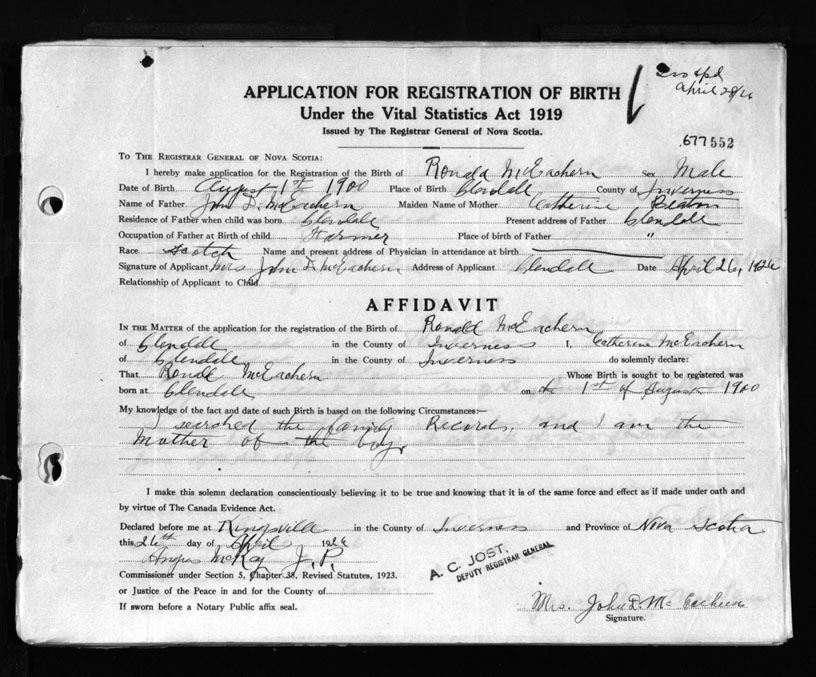 April 28/26
APPLICATION FOR REGISTRATION OF BIRTH
Under the Vital Statistics Act 1919
Issued by The Registrar General of Nova Scotia.
677552
TO THE REGISTRAR GENERAL OF NOVA SCOTIA:
I hereby make application for the Registration of the Birth of Ronald McEachern sex Male
Date of Birth August 1st 1900 Place of Birth Glendale County of Inverness
Name of Father John D. McEachern Maiden Name of Mother Catherine Beaton
Residence of Father when child was born Glendale Present address of Father Glendale
Occupation of Father at Birth of child Farmer Place of birth of Father "
Race Scotch Name and present address of Physician in attendance at birth
Signature of Applicant Mrs John D. McEachern Address of Applicant Glendale Date April 26, 1926
Relationship of Applicant to Child
AFFIDAVIT
IN THE MATTER of the application for the registration of the Birth of Ronald McEachern
of Glendale in the County of Inverness I, Catherine McEachern
of Glendale in the County of Inverness do solemnly declare:
That Ronald McEachern Whose Birth is sought to be registered was
born at Glendale on the 1st of August 1900
My knowledge of the fact and date of such Birth is based on the following Circumstances:—
I searched the family Records, and I am the
Mother of the boy.
I make this solemn declaration conscientiously believing it to be true and knowing that it is of the same force and effect as if made under oath and
by virtue of The Canada Evidence Act.
Declared before me at Kingsville in the County of Inverness and Province of Nova Scotia
this 26th day of April 1926
Angus McKay J.P.
A. C. JOST,
DEPUTY REGISTRAR GENERAL
Commissioner under Section 5, Chapter 38, Revised Statutes, 1923.
or Justice of the Peace in and for the County of
If sworn before a Notary Public affix seal.
Mrs. John D. McEachern
Signature.